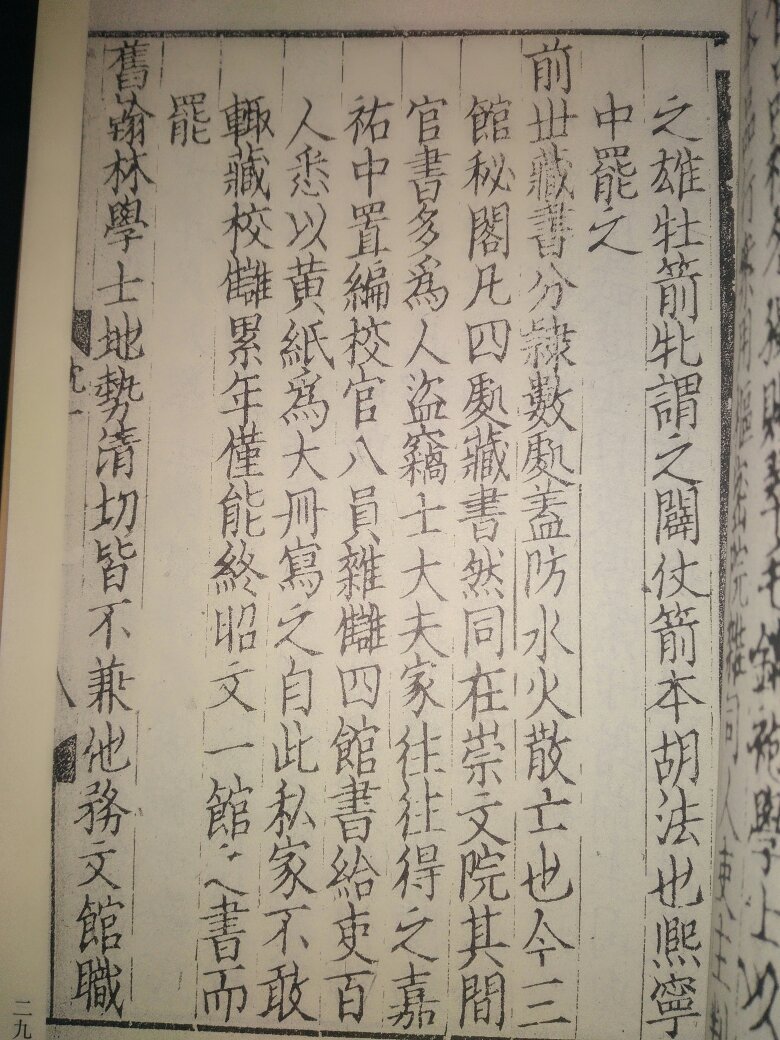 之雄牡箭牝謂之闢仗箭本胡法也熈寧
中罷之
前世藏書分隸數處蓋防水火散亡也今三
館秘閣凡四處藏書然同在崇文院其間
官書多爲人盜竊士大夫家往往得之嘉
祐中置編校官八員雜讎四館書給吏百
人悉以黄紙爲大冊寫之自此私家不敢
輙藏校讎累年僅能終昭文一館之書而
罷
舊翰林學士地勢清切皆不兼他務文館職
二九